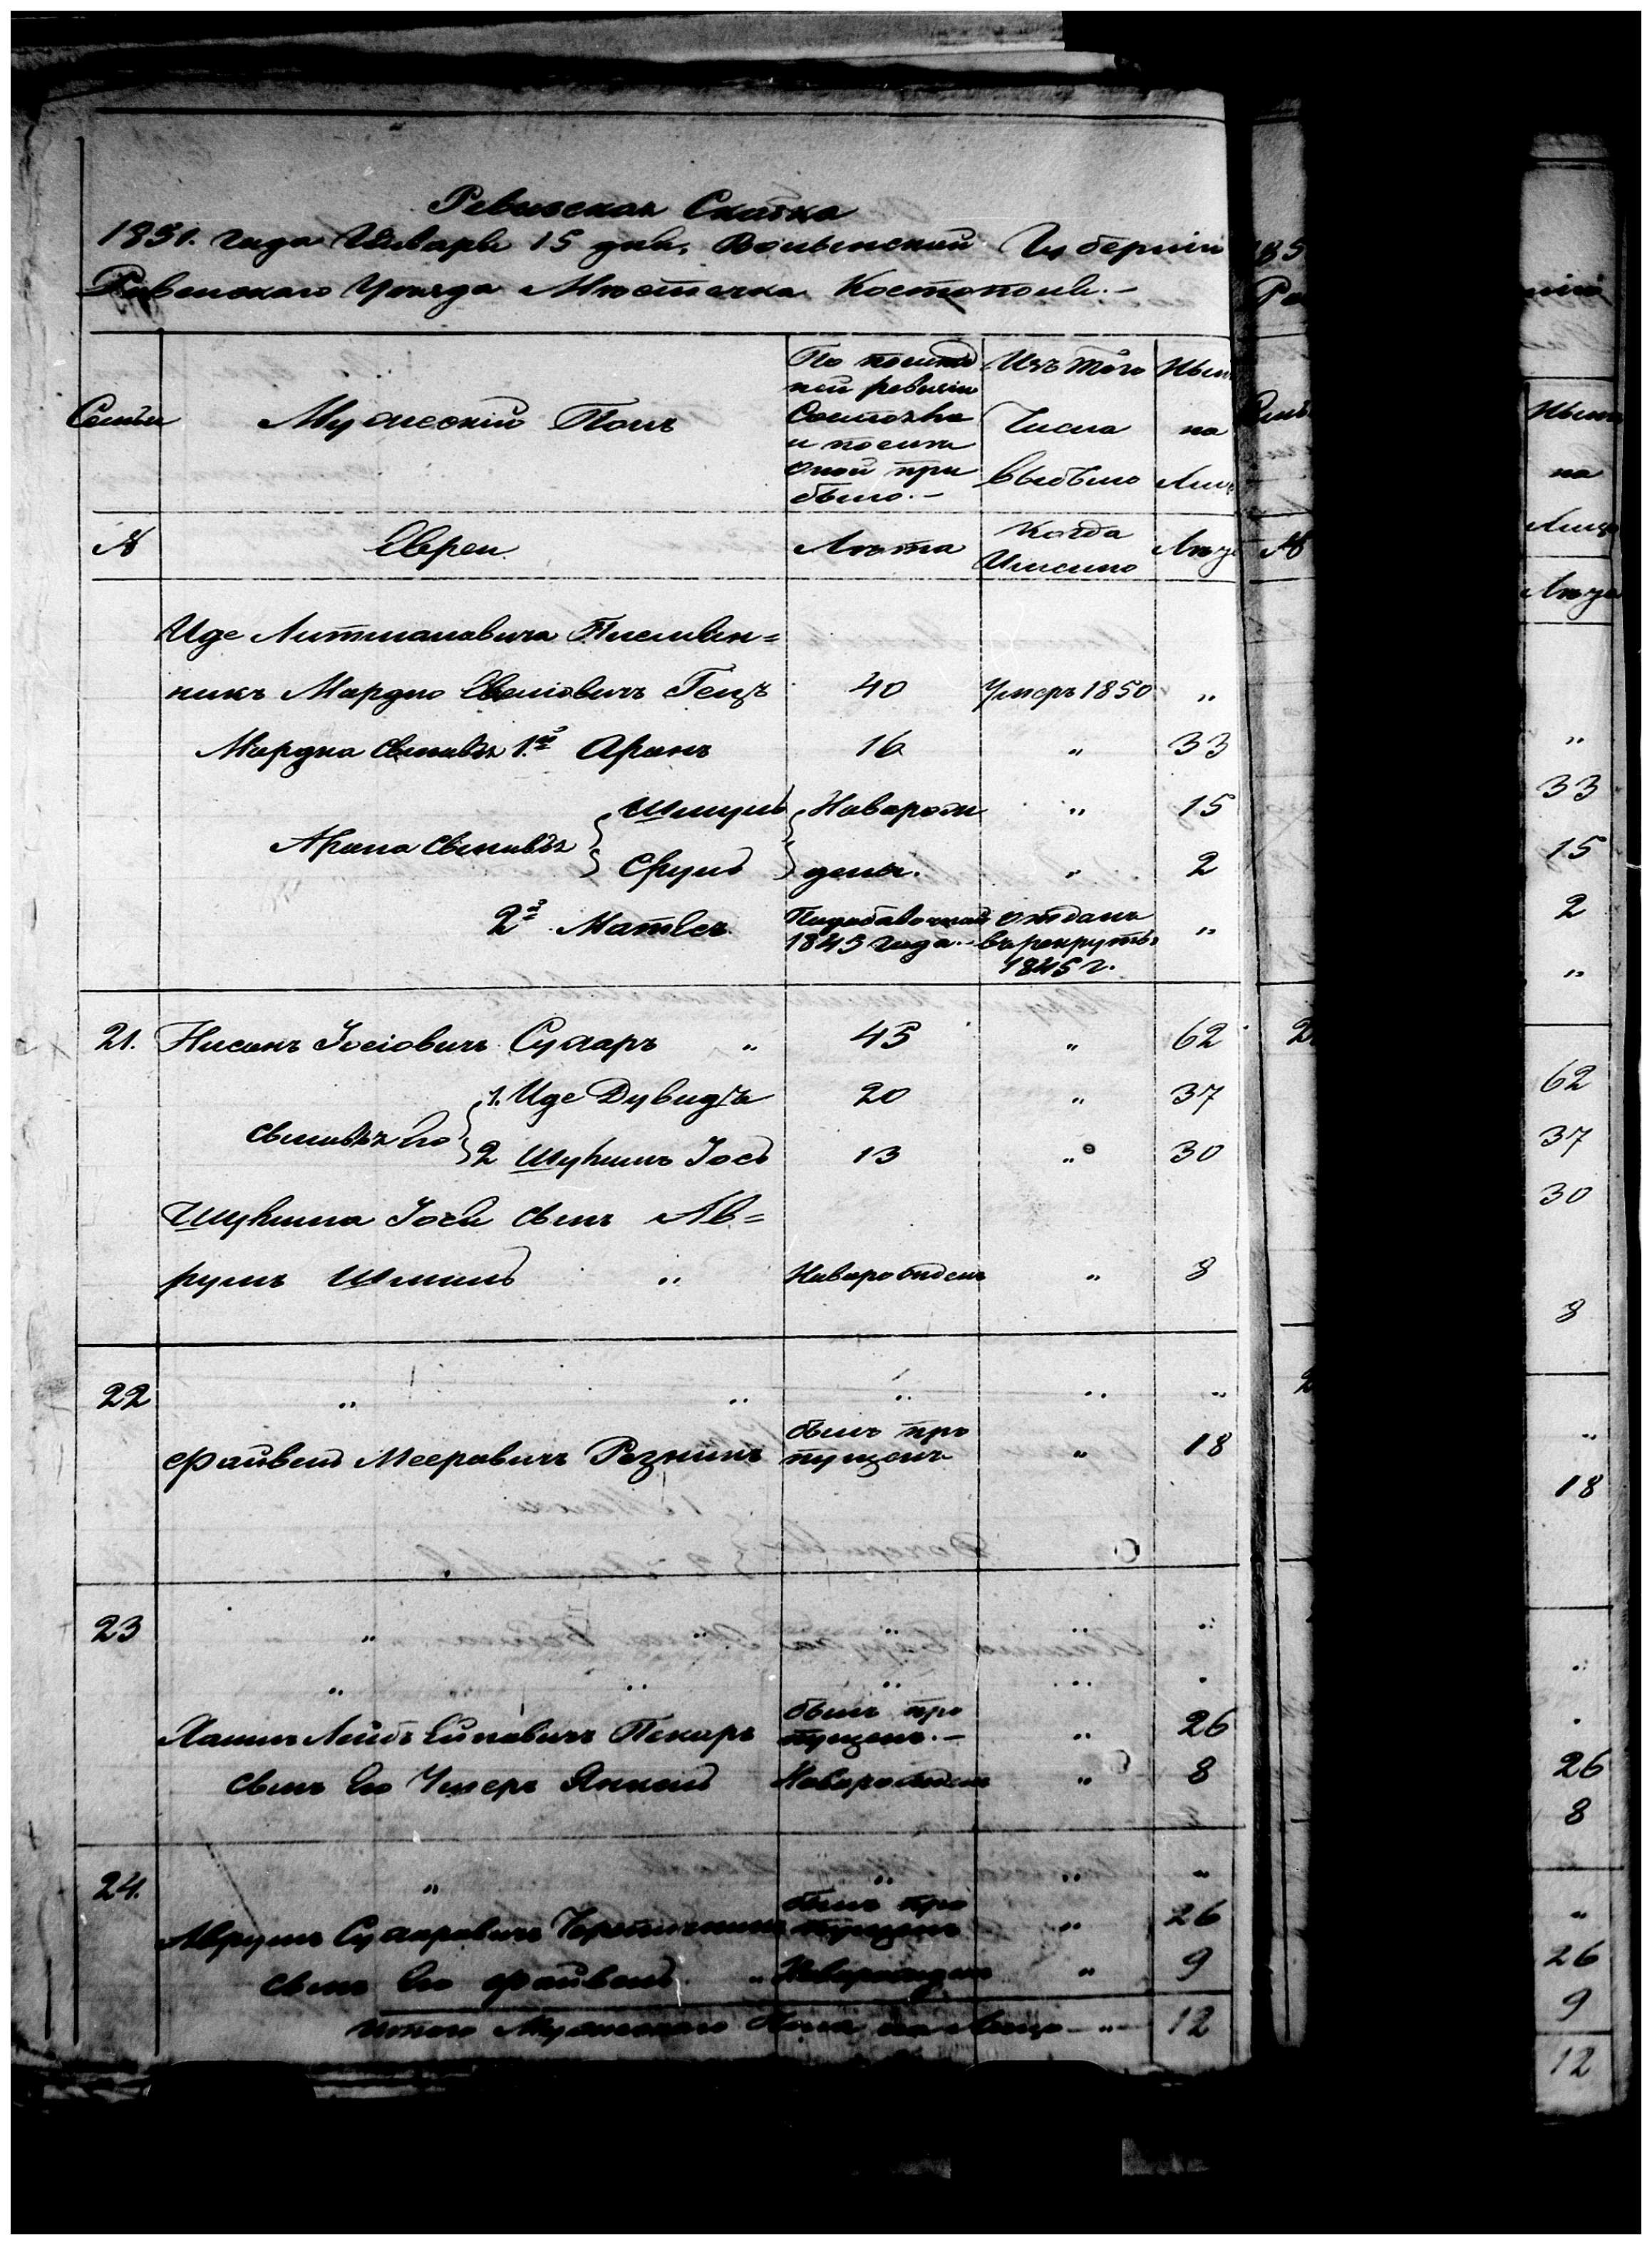 Ревизская Сказка
1851. года Января 15 дня, Волынский Губернии
Ровенскаго Уезда Местечка Костополь.-
Семьи
Мужеский Полъ
По последней ревизии состояло и после оной при было.-
Изъ того Числа выбыло
Ныне на Лицо
№
Евреи
Лета
Когда Именно
Лета
Иде Литмановича Писменникъ Мардко Гецъ 40 Умеръ 1850 „
Мардка сыновья 1й Аронъ 16 „ 33
Арона сыновья
Шмуль Новорож „ 15
Сруль дены. „ 2
2й Матвес Подобавочной 1845 года.- отданъ в рекруты 1845 г. „
21. Нисонъ Іосіовичъ Сухаръ „ 45 „ 62
сыновья его
1. Иде Дувидъ 20 „ 37
2 Шулимъ Іось 13 „ 30
Шулима Іося сынъ Ав=
румъ Шмиль „ Новорожден „ 8
22 „ „ „ „ „
Файвель Мееровичъ Резникъ былъ пропущенъ „ 18
23 „ „ „ „ „
„ „ „ „ „
Хаимъ Лейбъ Пекаръ былъ пропущенъ.- „ 26
сынъ его Умеръ Янкель Новорожден „ 8
24. „ „ „ „
Аврумъ Сухаровичъ былъ пропущенъ „ 26
сынъ его Файвель „ Новорожден „ 9
Итого Мужескаго Пола на Лицо - „ - 12
185
Ро
Семь
№
2
2
нии
Ныне
на
Лицо
Лета
„
33
15
2
„
62
37
30
8
„
18
„
„
26
8
„
26
9
12